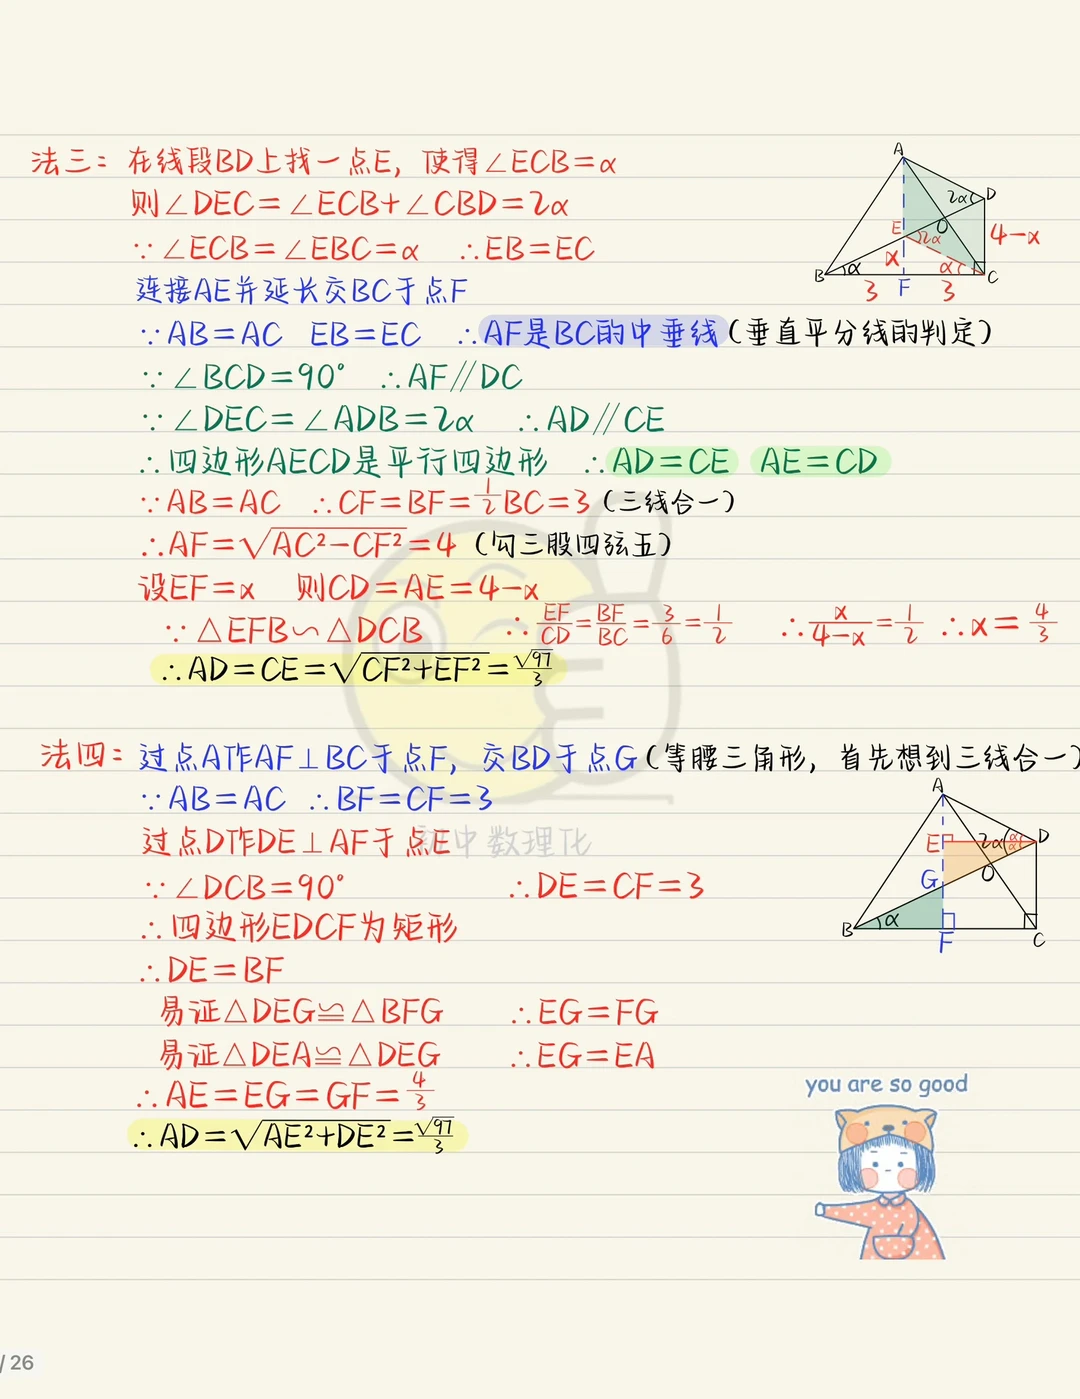 法三：在线段BD上找一点E，使得∠ECB=α
则∠DEC=∠ECB+∠CBD=2α
∵∠ECB=∠EBC=α ∴EB=EC
连接AE并延长交BC于点F
∵AB=AC EB=EC ∴AF是BC的中垂线(垂直平分线的判定)
∵∠BCD=90° ∴AF∥DC
∵∠DEC=∠ADB=2α ∴AD∥CE
∴四边形AECD是平行四边形 ∴AD=CE AE=CD
∵AB=AC ∴CF=BF=1/2BC=3(三线合一)
∴AF=√AC²-CF²=4 (勾三股四弦五)
设EF=x 则CD=AE=4-x
∵△EFB∽△DCB ∴EF/CD=BF/BC=3/6=1/2 ∴x/4-x=1/2 ∴x=4/3
∴AD=CE=√CF²+EF²=√97/3
A
D
2α
E
O
2α
4-x
x
B
α
α
C
3
F
3
法四：过点A作AF⊥BC于点F，交BD于点G(等腰三角形，首先想到三线合一)
∵AB=AC ∴BF=CF=3
过点D作DE⊥AF于点E
初中数理化
∵∠DCB=90° ∴DE=CF=3
∴四边形EDCF为矩形
∴DE=BF
易证△DEG≌△BFG ∴EG=FG
易证△DEA≌△DEG ∴EG=EA
∴AE=EG=GF=4/3
∴AD=√AE²+DE²=√97/3
A
E
2α
α
α
D
G
O
B
α
F
C
you are so good
/ 26